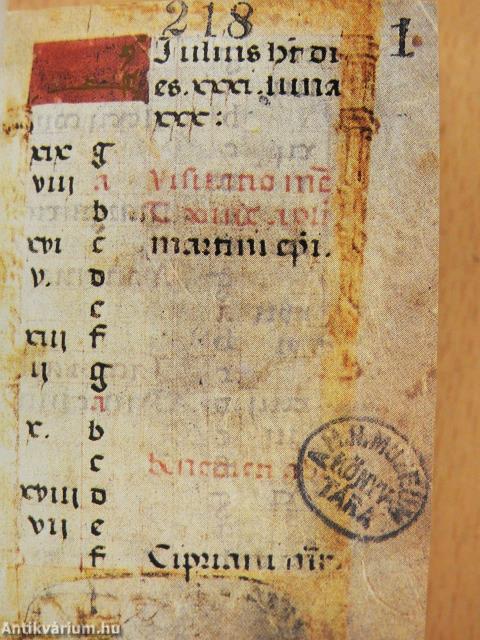 218
1
Iulius ht di
es. xxxi. luna
xxx:
xix g
viii A Visitatio
b
xvi c martini epi.
v. D
e
xiii f
ii g
A
x. b
c Benedicti
xviii D
vii e
f Cipriani mr.
A M. N. MUZEUM
KÖNYV-
TÁRA
Antikvárium.hu